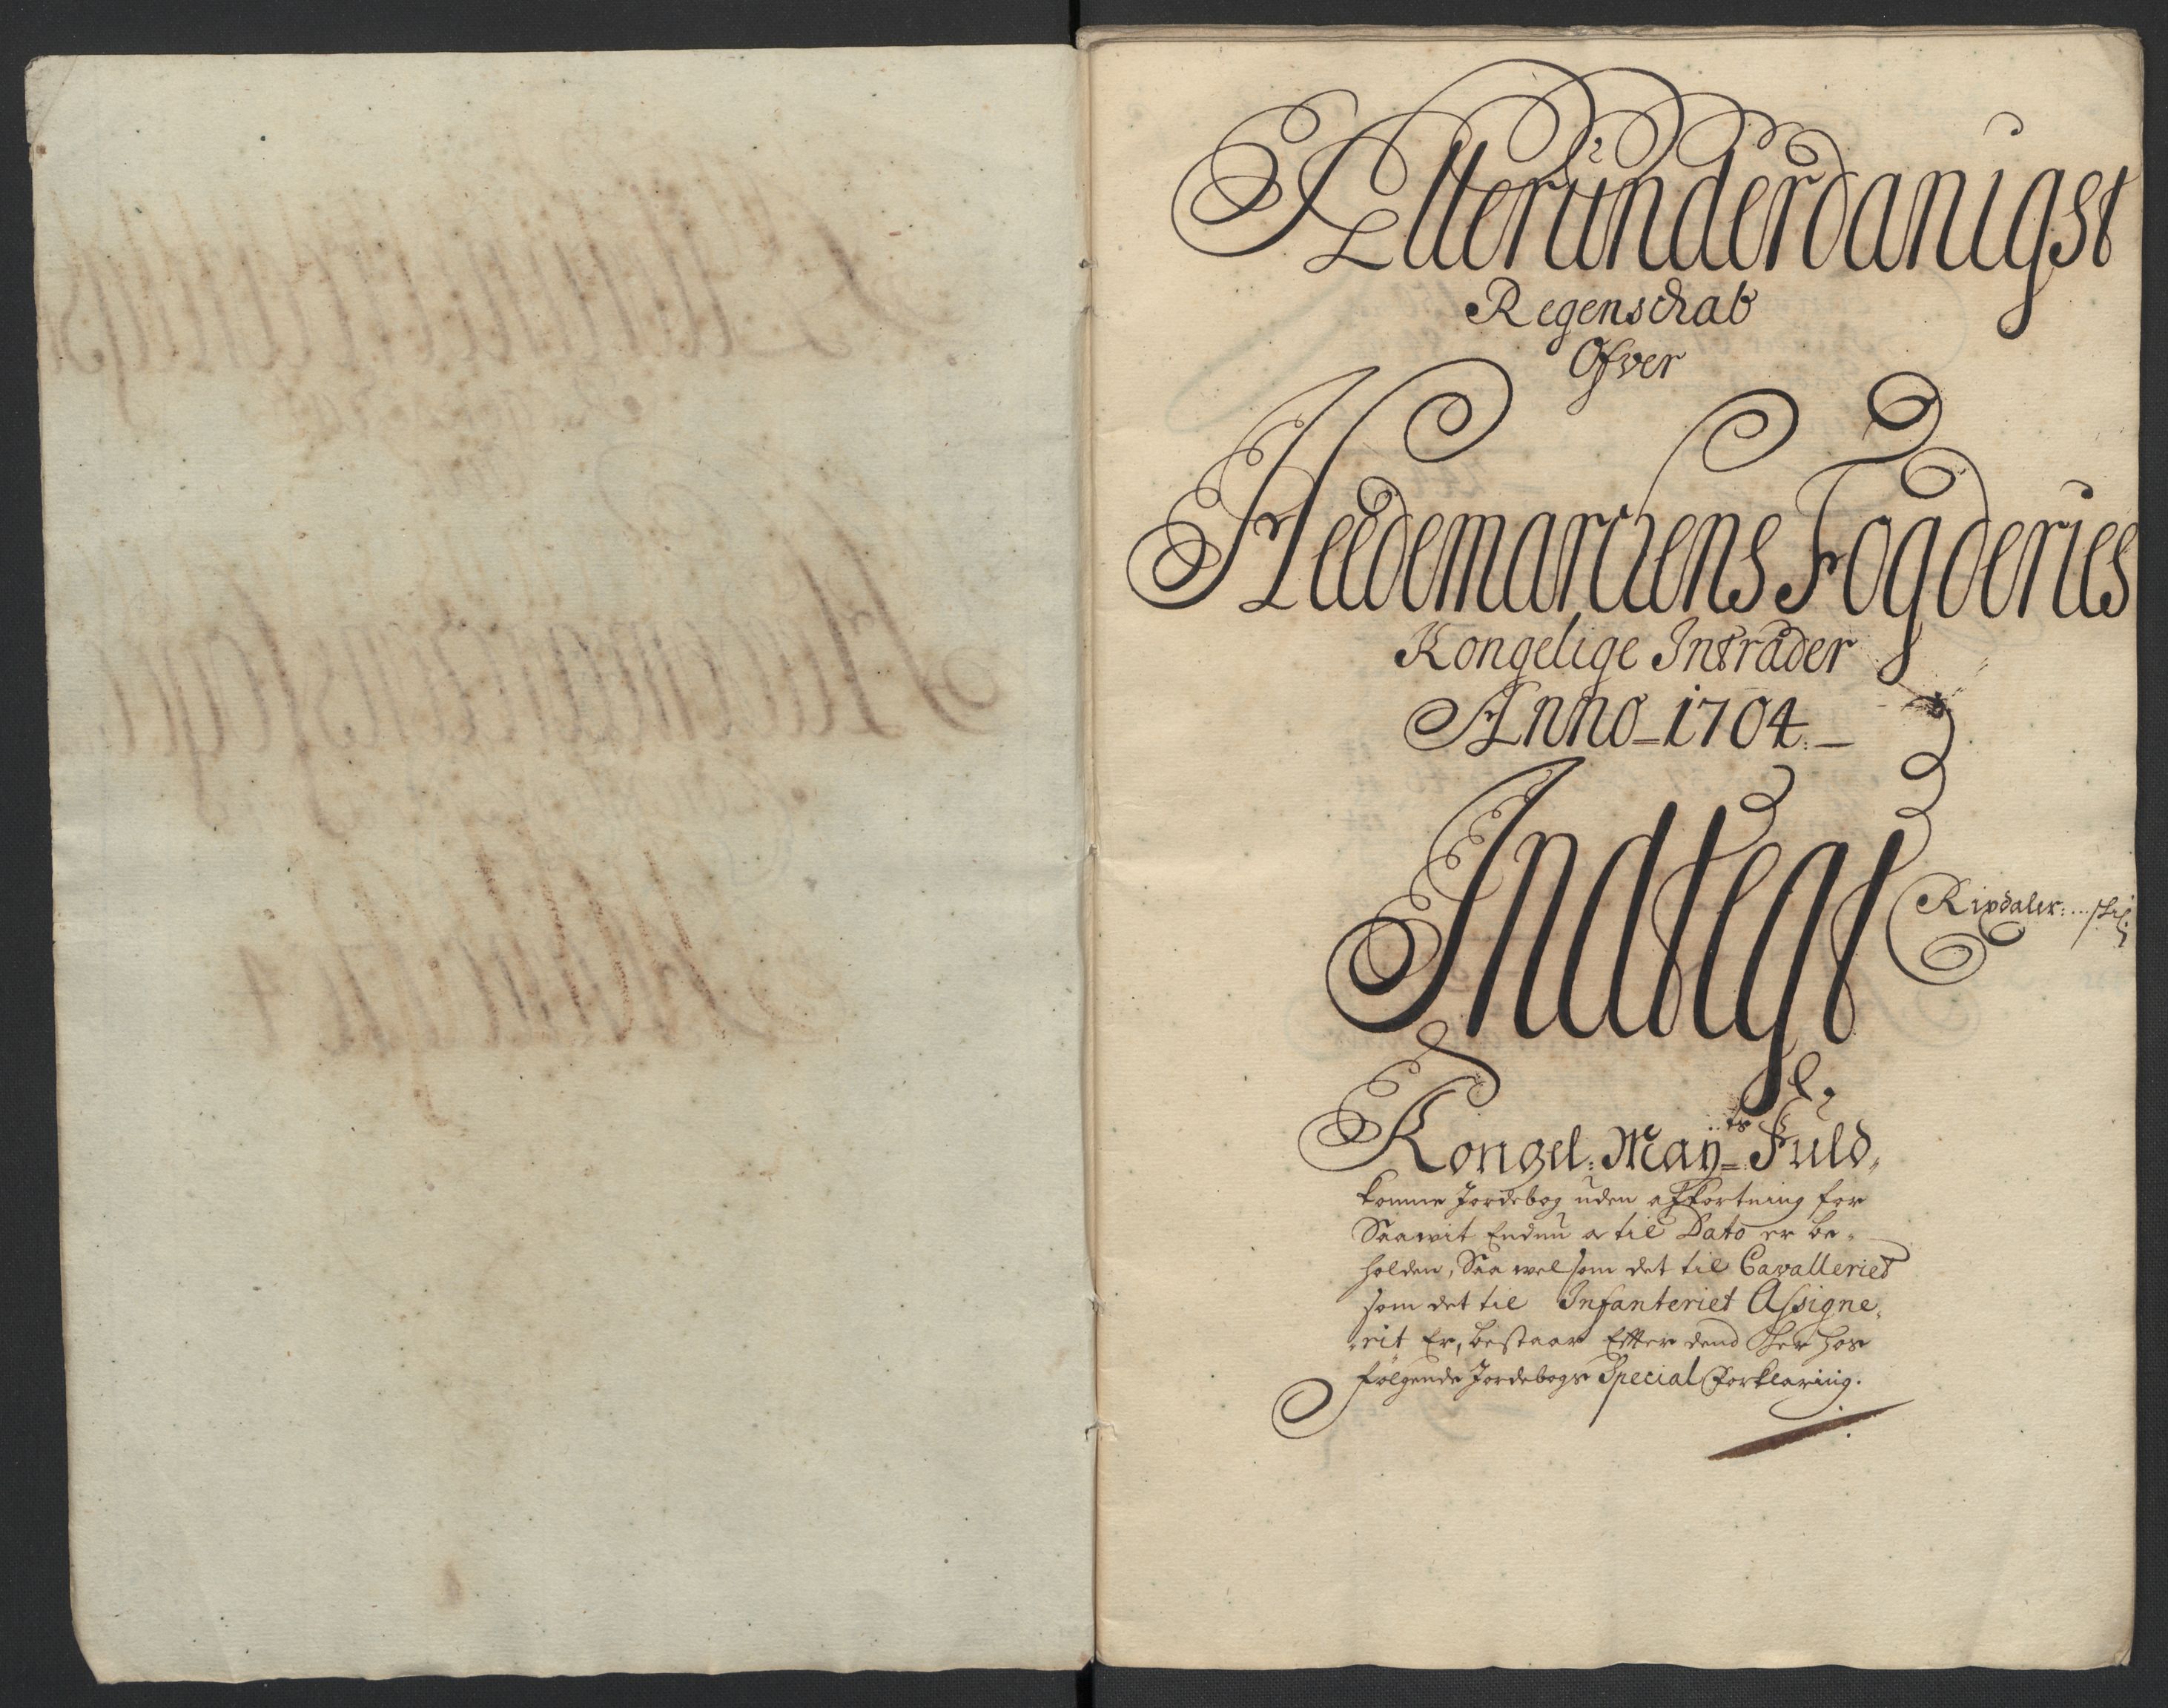 Alleründerdanigst
Regenschab
Ofver
Heedemarchens Fogderies
Kongelige Intrader
Anno 1704.
Indtegt
Rixdaler: ... skil:
Kongel: May:ts Fuld,,
komne Jordebog uden afkortning for
Saawit Endnu a til Dato er be,,
holden, Saa wel som det til Cavalleriet
som det til Infanteriet Assigne,,
,,rit Er, bestaar Efter dend her hos
følgende Jordebogs Special Forklaring.